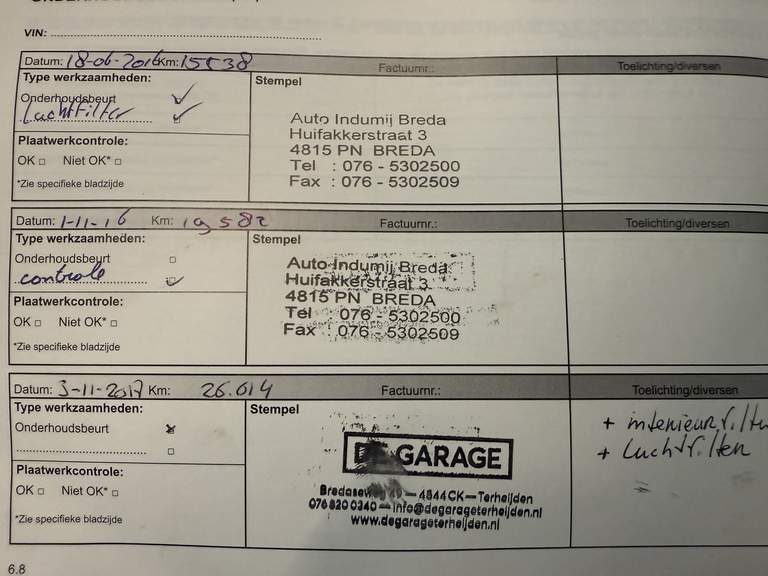 VIN:
Datum: 18-06-2016 Km: 15538 Factuurnr.: Toelichting/diversen
Type werkzaamheden: Stempel
Onderhoudsbeurt
Luchtfilter
Plaatwerkcontrole:
OK Niet OK*
*Zie specifieke bladzijde
Auto Indumij Breda
Huifakkerstraat 3
4815 PN BREDA
Tel : 076 - 5302500
Fax : 076 - 5302509
Datum: 1-11-16 Km: 19582 Factuurnr.: Toelichting/diversen
Type werkzaamheden: Stempel
Onderhoudsbeurt
controle
Plaatwerkcontrole:
OK Niet OK*
*Zie specifieke bladzijde
Auto Indumij Breda
Huifakkerstraat 3
4815 PN BREDA
Tel : 076 - 5302500
Fax : 076 - 5302509
Datum: 3-11-2017 Km: 26.614 Factuurnr.: Toelichting/diversen
Type werkzaamheden: Stempel
Onderhoudsbeurt
Plaatwerkcontrole:
OK Niet OK*
*Zie specifieke bladzijde
GARAGE
Bredaseweg 49 – 4844 CK – Terheijden
076 820 0340 – info@degarageterheijden.nl
www.degarageterheijden.nl
+ interieurfilter
+ Luchtfilter
6.8